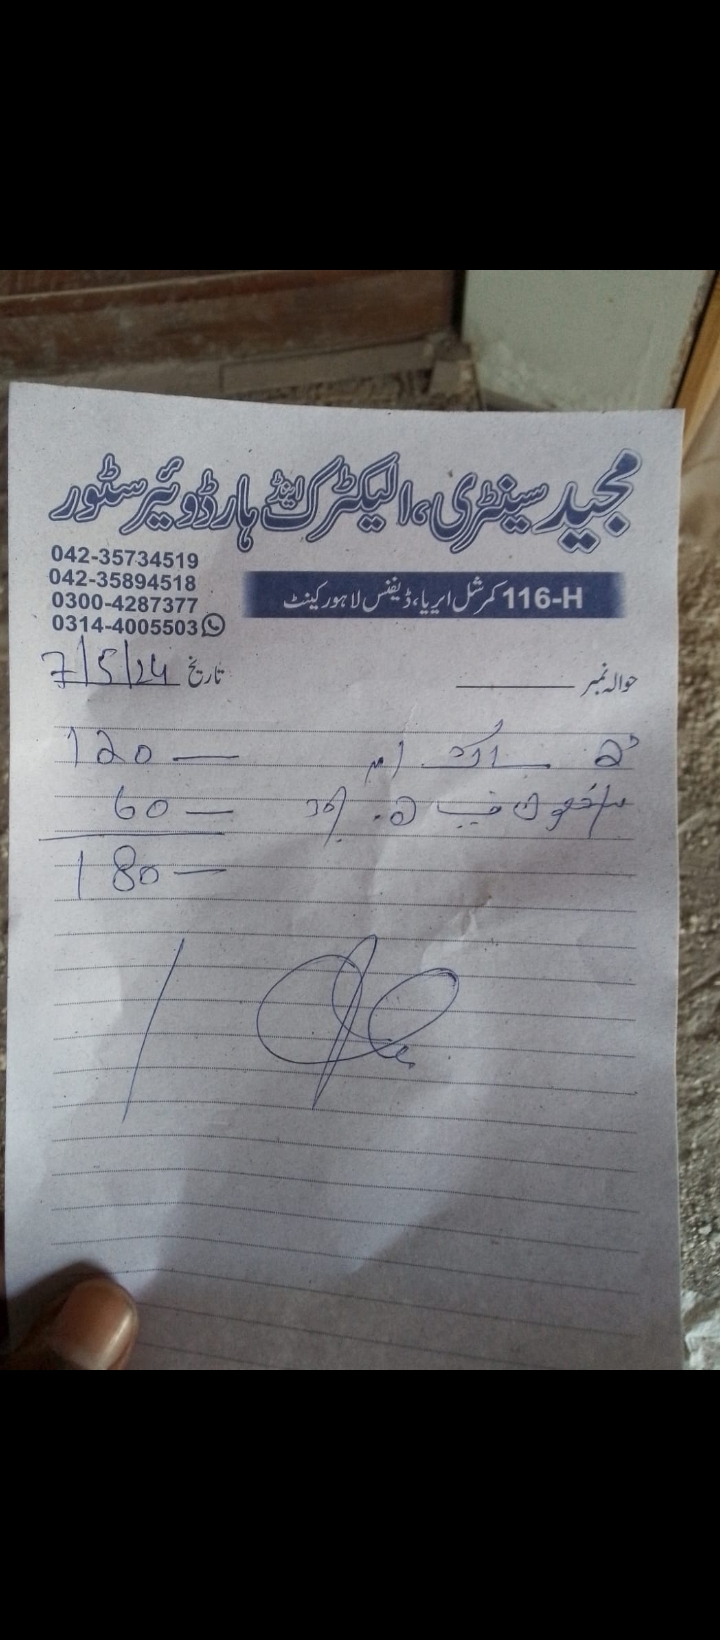 مجید سینٹری، الیکٹرک اینڈ ہارڈویئر سٹور
042-35734519
042-35894518
0300-4287377
0314-4005503
116-H کمرشل ایریا، ڈیفنس لاہور کینٹ
حوالہ نمبر
تاریخ 7/5/24
120 —
60 —
180 —